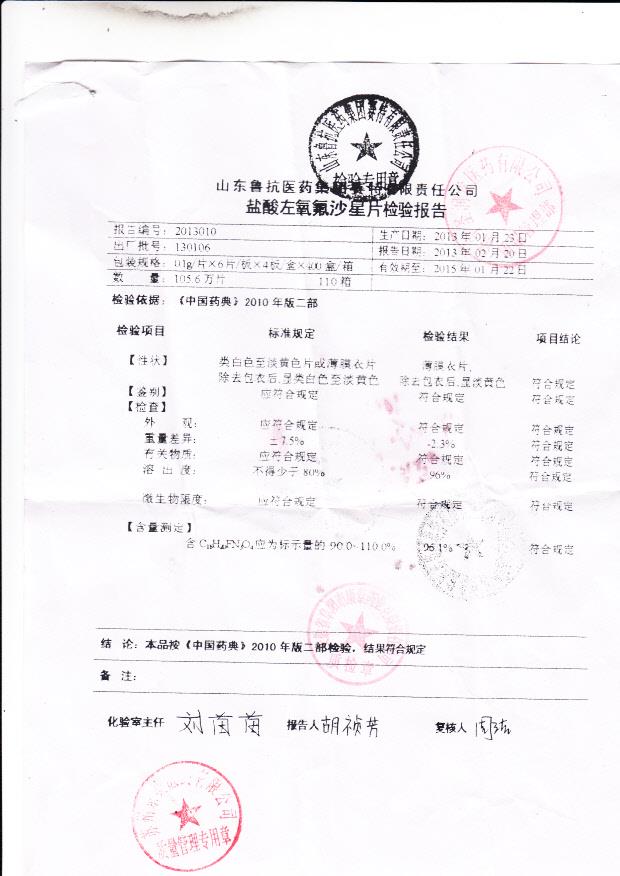 山东鲁抗医药集团赛特有限责任公司
检验专用章
山东鲁抗医药集团赛特有限责任公司
盐酸左氧氟沙星片检验报告
报告编号: 2013010 生产日期: 2013 年 01 月 23 日
出厂批号: 130106 报告日期: 2013 年 02 月 20 日
包装规格: 01g/片×6片/板×4板/盒×400盒/箱 有效期至: 2015 年 01 月 22 日
数 量: 105.6万片 110箱
检验依据: 《中国药典》2010 年版二部
检验项目 标准规定 检验结果 项目结论
【性状】 类白色至淡黄色片或薄膜衣片 薄膜衣片,
除去包衣后,显类白色至淡黄色 除去包衣后,显淡黄色 符合规定
【鉴别】 应符合规定 符合规定 符合规定
【检查】
外 观: 应符合规定 符合规定 符合规定
重量差异: ±7.5% -2.3% 符合规定
有关物质: 应符合规定 符合规定 符合规定
溶 出 度: 不得少于80% 96% 符合规定
微生物限度: 应符合规定 符合规定 符合规定
【含量测定】
应为标示量的 90.0~110.0% 96.1% 符合规定
结 论: 本品按《中国药典》2010 年版二部检验, 结果符合规定
备 注:
化验室主任 刘茵茵 报告人 胡祯芳 复核人
质量管理专用章